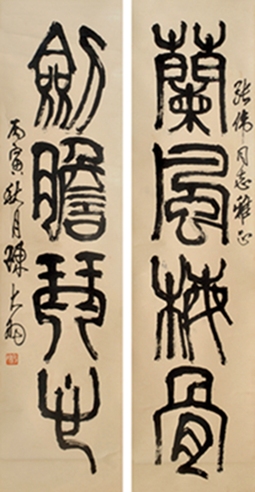 张伟同志雅正
蘭風梅骨
劍膽琴心
丙寅秋月陳大羽